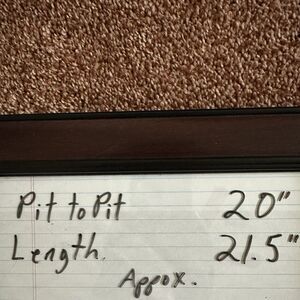 Pit to Pit 20"
Length. 21.5"
Appox.